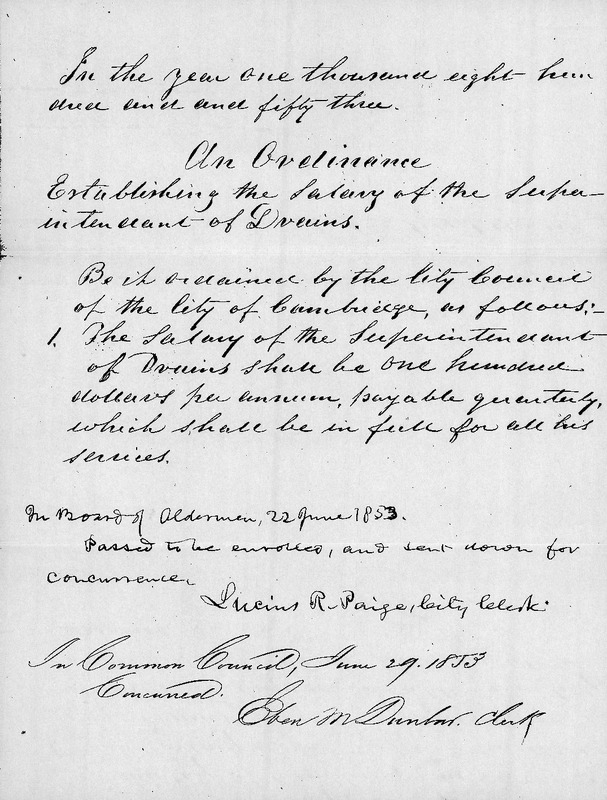 In the year one thousand eight hun
dred and and fifty three.
An Ordinance
Establishing the Salary of the Supe-
intendant of Drains.
Be it ordained by the City Council
of the City of Cambridge, as follows:-
1. The Salary of the Superintendant
of Drains shall be one hundred
dollars per annum, payable quarterly,
which shall be in full for all his
services.
In Board of Aldermen, 22 June 1853.
Passed to be enrolled, and sent down for
concurrence.
Lucius R. Paige, City Clerk.
In Common Council, June 29. 1853
Concurred.
Eben M Dunbar. Clerk